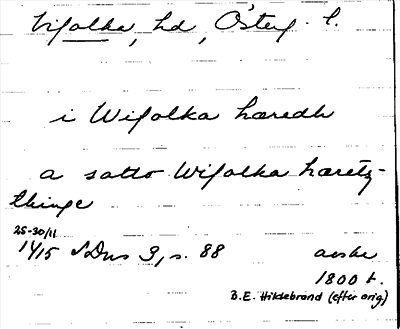 Vifolka, hd, Österg. l.
i Wifolka hæredh
a satto Wifolka hæretz-
thinge
25-30/11
1415 SDns 3, s. 88 avskr
1800 t.
B.E. Hildebrand (efter orig)